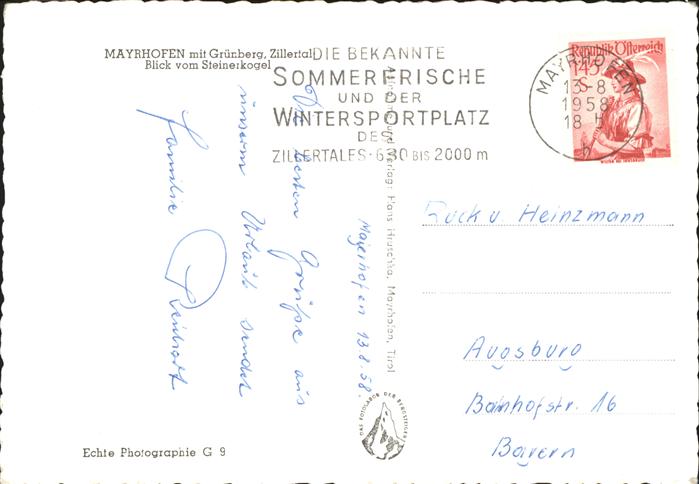 MAYRHOFEN mit Grünberg, Zillertal
Blick vom Steinerkogel
DIE BEKANNTE
SOMMERFRISCHE
UND DER
WINTERSPORTPLATZ
DES
ZILLERTALES · 630 BIS 2000 m
MAYRHOFEN
13-8
1958
18 H
h
Republik Österreich
1'45
S
Die besten Grüße aus
unserm Urlaub sendet
Familie Reinhart
Mayerhofen 13.8.58.
Verlag: Hans Hruschka, Mayrhofen, Tirol
v. Heinzmann
Augsburg
Bahnhofstr. 16
Bayern
DAS FOTOLABOR DER BERGSTEIGER
Echte Photographie G 9